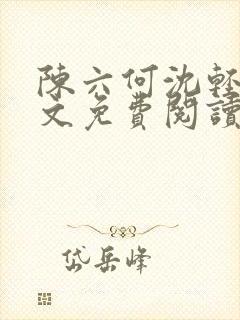 陳六何沈輕
文免費閱讀
岱岳峰